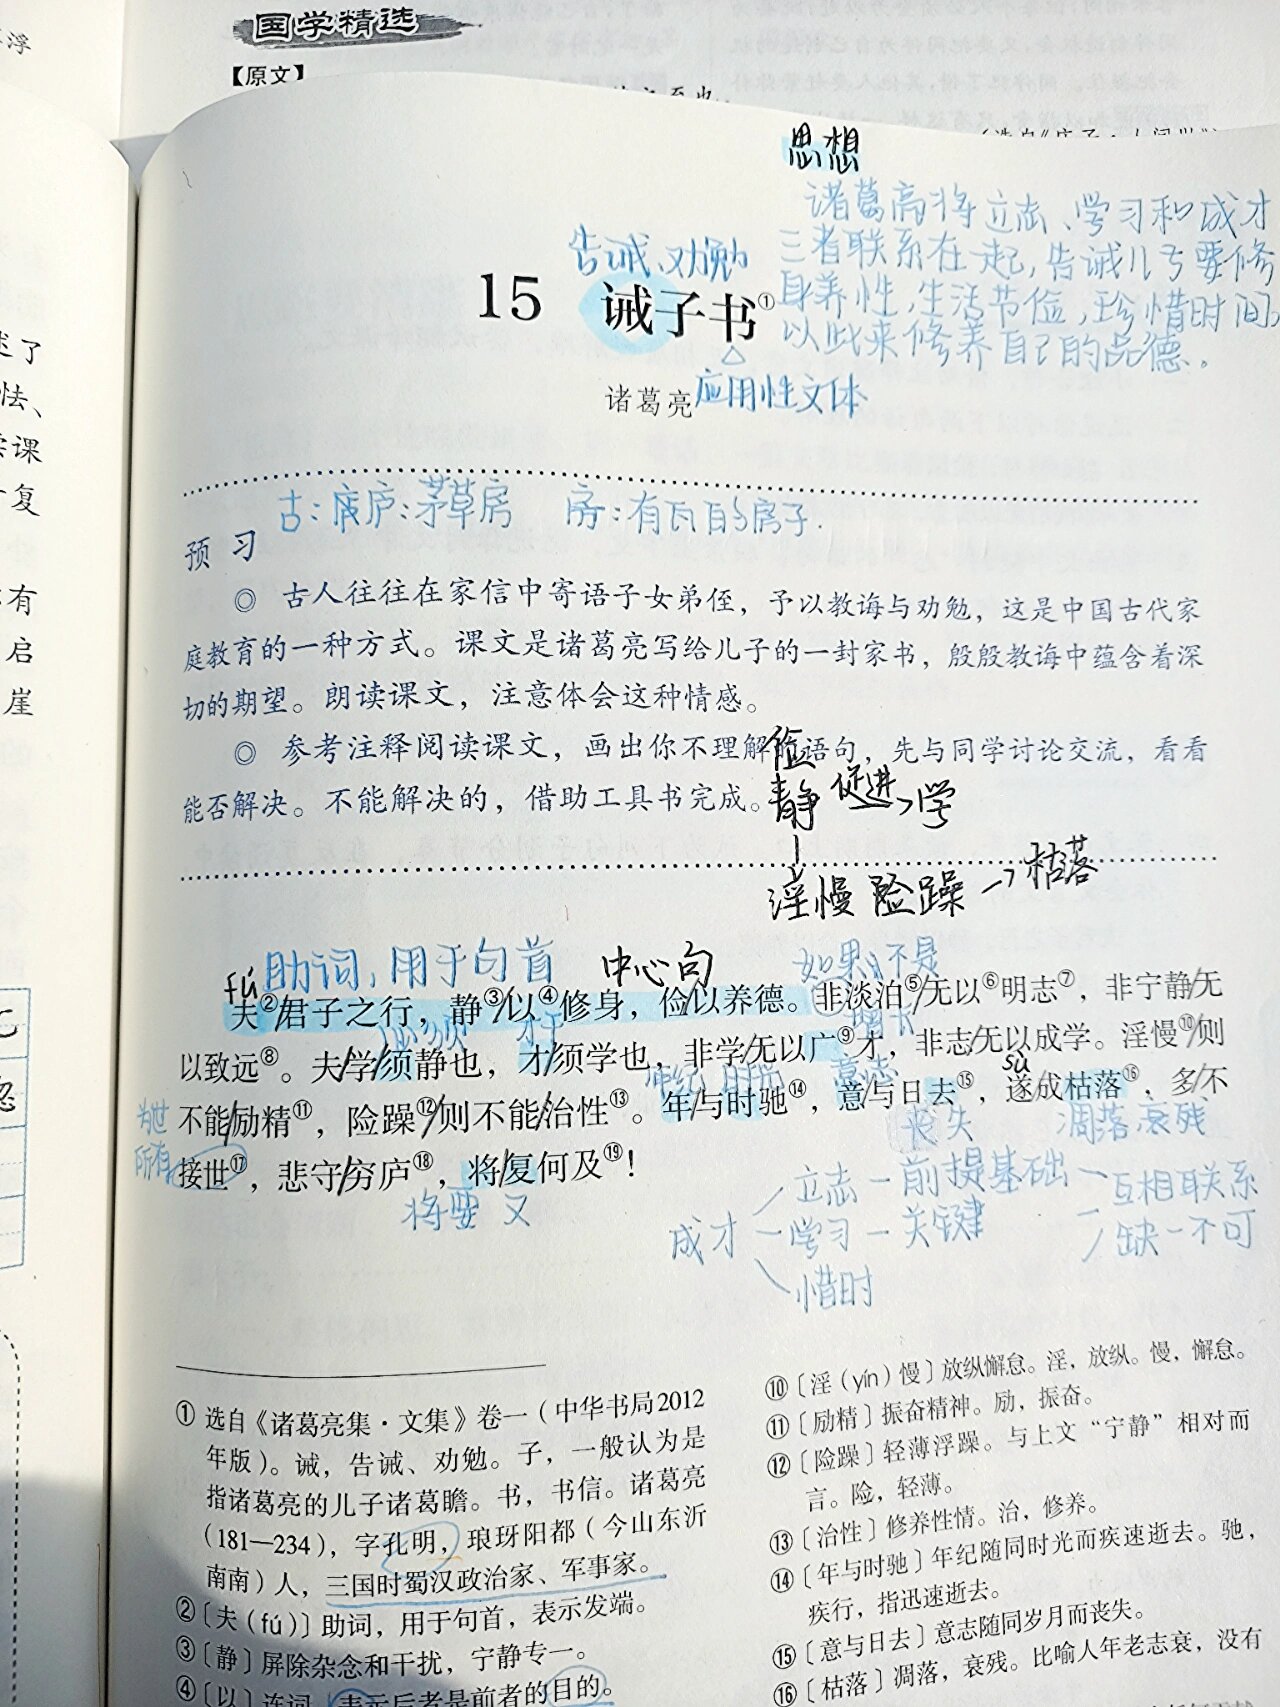 国学精选
【原文】
思想
诸葛亮将立志、学习和成才
三者联系在一起，告诫儿子要修
身养性，生活节俭，珍惜时间，
以此来修养自己的品德。
告诫、劝勉
15 诫子书①
诸葛亮
应用性文体
古：废庐：茅草房 房：有瓦的房子.
预习
◎ 古人往往在家信中寄语子女弟侄，予以教诲与劝勉，这是中国古代家
庭教育的一种方式。课文是诸葛亮写给儿子的一封家书，殷殷教诲中蕴含着深
切的期望。朗读课文，注意体会这种情感。
◎ 参考注释阅读课文，画出你不理解的语句，先与同学讨论交流，看看
能否解决。不能解决的，借助工具书完成。
俭
静 促进→学
淫慢 险躁→枯落
fú 助词，用于句首 中心句 如果 不是
夫②/君子之行，静③/以④修身，俭/以养德。非淡泊⑤/无以⑥明志⑦，非宁静/无
必须 才干 增长
以致远⑧。夫/学/须静也，才/须学也，非学/无以广⑨才，非志/无以成学。淫慢⑩/则
年纪 时间 意志 suì
不能/励精⑪，险躁⑫/则不能/治性⑬。年/与时驰⑭，意/与日去⑮，遂成枯落⑯，多/不
为世所用 丧失 凋落衰残
接世⑰，悲守/穷庐⑱，将/复何及⑲！
将要 又
成才 立志—前提基础 互相联系
学习—关键 缺一不可
惜时
① 选自《诸葛亮集·文集》卷一（中华书局2012
年版）。诫，告诫、劝勉。子，一般认为是
指诸葛亮的儿子诸葛瞻。书，书信。诸葛亮
（181—234），字孔明，琅玡阳都（今山东沂
南南）人，三国时蜀汉政治家、军事家。
②〔夫（fú）〕助词，用于句首，表示发端。
③〔静〕屏除杂念和干扰，宁静专一。
④〔以〕连词，表示后者是前者的目的。
⑩〔淫（yín）慢〕放纵懈怠。淫，放纵。慢，懈怠。
⑪〔励精〕振奋精神。励，振奋。
⑫〔险躁〕轻薄浮躁。与上文“宁静”相对而
言。险，轻薄。
⑬〔治性〕修养性情。治，修养。
⑭〔年与时驰〕年纪随同时光而疾速逝去。驰，
疾行，指迅速逝去。
⑮〔意与日去〕意志随同岁月而丧失。
⑯〔枯落〕凋落，衰残。比喻人年老志衰，没有